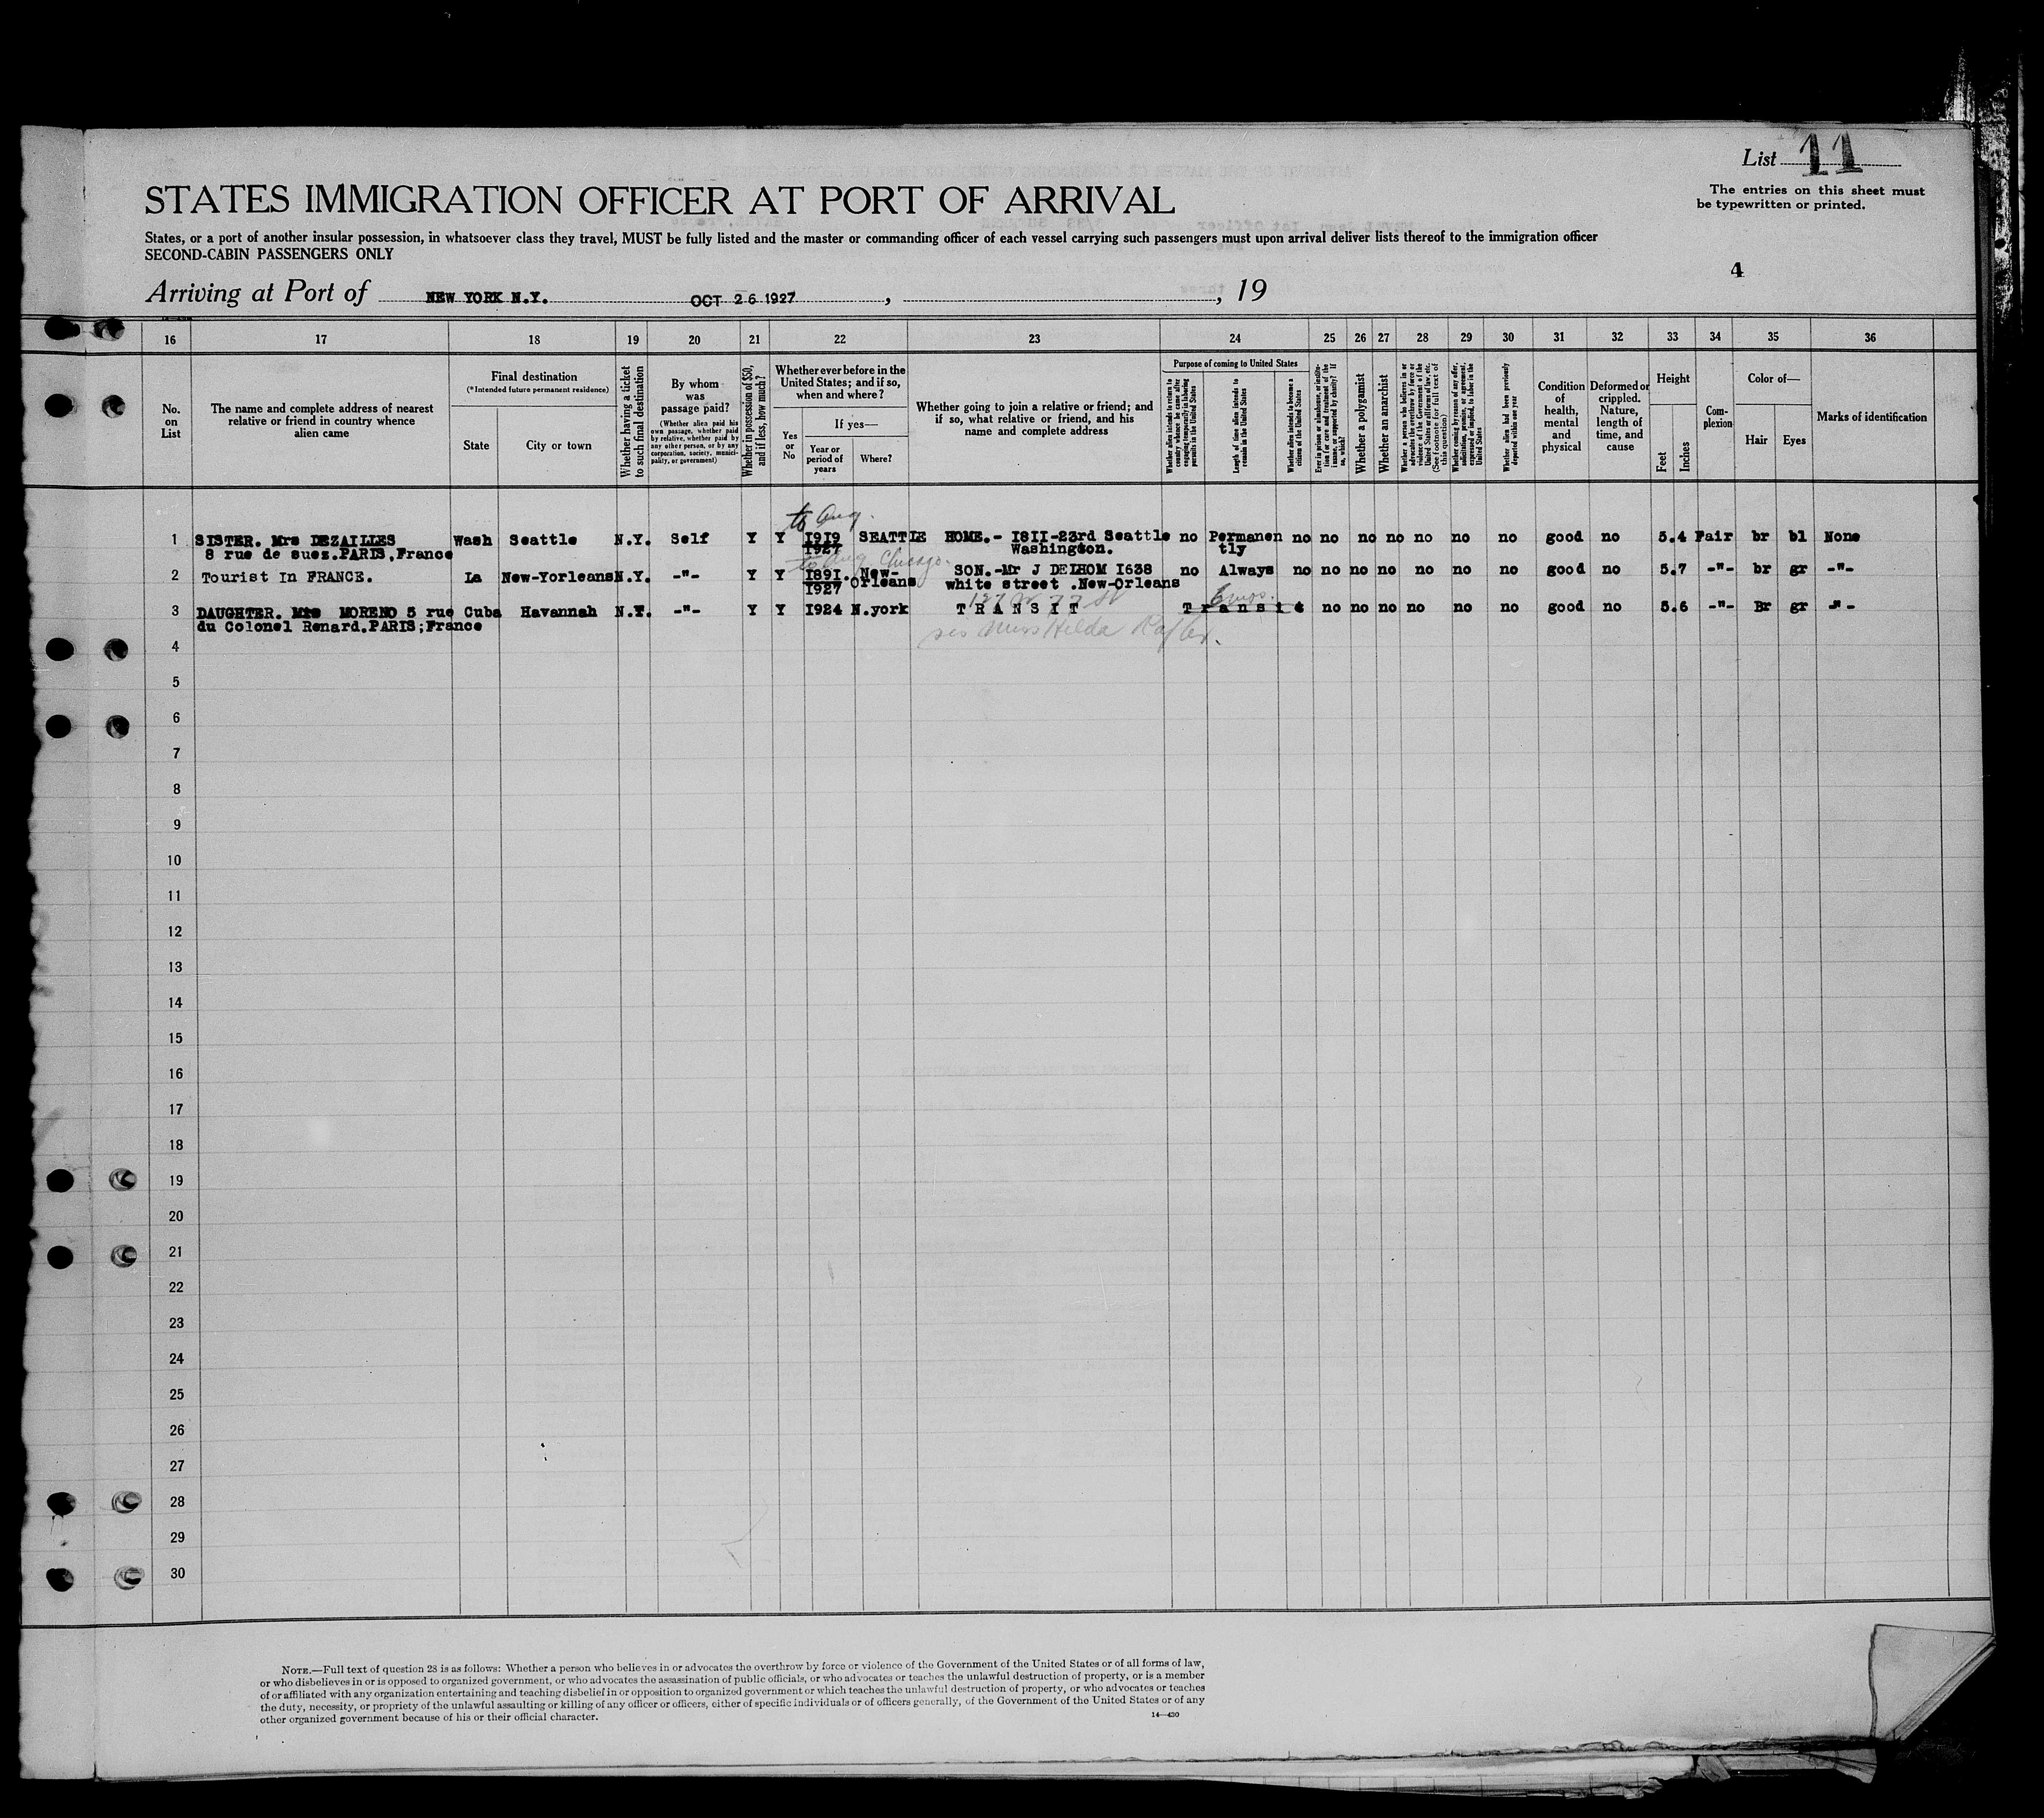 List 11
The entries on this sheet must
be typewritten or printed.
STATES IMMIGRATION OFFICER AT PORT OF ARRIVAL
States, or a port of another insular possession, in whatsoever class they travel, MUST be fully listed and the master or commanding officer of each vessel carrying such passengers must upon arrival deliver lists thereof to the immigration officer
SECOND-CABIN PASSENGERS ONLY
4
Arriving at Port of NEW YORK N.Y. OCT 26 1927, , 19
16 17 18 19 20 21 22 23 24 25 26 27 28 29 30 31 32 33 34 35 36
No.
on
List
The name and complete address of nearest
relative or friend in country whence
alien came
Final destination
(*Intended future permanent residence)
State
City or town
Whether having a ticket
to such final destination
By whom
was
passage paid?
(Whether alien paid his
own passage, whether paid
by relative, whether paid by
any other person, or by any
corporation, society, munici-
pality, or government)
Whether in possession of $50,
and if less, how much?
Whether ever before in the
United States; and if so,
when and where?
Yes
or
No
If yes—
Year or
period of
years
Where?
Whether going to join a relative or friend; and
if so, what relative or friend, and his
name and complete address
Purpose of coming to United States
Whether alien intends to return to
country whence he came after
engaging temporarily in laboring
pursuits in the United States
Length of time alien intends to
remain in the United States
Whether alien intends to become a
citizen of the United States
Ever in prison or almshouse, or institu-
tion for care and treatment of the
insane, or supported by charity? If
so, which?
Whether a polygamist
Whether an anarchist
Whether a person who believes in or
advocates the overthrow by force or
violence of the Government of the
United States or all forms of law, etc.
(See footnote for full text of
this question)
Whether coming by reason of any offer,
solicitation, promise, or agreement,
expressed or implied, to labor in the
United States
Whether alien had been previously
deported within one year
Condition
of
health,
mental
and
physical
Deformed or
crippled.
Nature,
length of
time, and
cause
Height
Feet
Inches
Com-
plexion
Color of—
Hair
Eyes
Marks of identification
to Aug.
1 SISTER. Mrs DEZAILLES Wash Seattle N.Y. Self Y Y I9I9 SEATTLE HOME.- I8II-23rd Seattle no Permanen no no no no no no no good no 5.4 Fair br bl None
8 rue de suez.PARIS,France 1927 Washington. tly
to Aug Chicago.
2 Tourist In FRANCE. La New-Yorleans N.Y. -"- Y Y I89I. New- SON.-Mr J DELHOM I638 no Always no no no no no no no good no 5.7 -"- br gr -"-
I927 Orleans white street .New-Orleans
127 W 77 St 6 mos.
3 DAUGHTER. Mrs MORENO 5 rue Cuba Havannah N.Y. -"- Y Y I924 N.york TRANSIT Transit no no no no no no good no 5.6 -"- Br gr -"-
du Colonel Renard.PARIS;France
Miss Hilda
4
5
6
7
8
9
10
11
12
13
14
15
16
17
18
19
20
21
22
23
24
25
26
27
28
29
30
NOTE.—Full text of question 28 is as follows: Whether a person who believes in or advocates the overthrow by force or violence of the Government of the United States or of all forms of law,
or who disbelieves in or is opposed to organized government, or who advocates the assassination of public officials, or who advocates or teaches the unlawful destruction of property, or is a member
of or affiliated with any organization entertaining and teaching disbelief in or opposition to organized government or which teaches the unlawful destruction of property, or who advocates or teaches
the duty, necessity, or propriety of the unlawful assaulting or killing of any officer or officers, either of specific individuals or of officers generally, of the Government of the United States or of any
other organized government because of his or their official character.
14—430